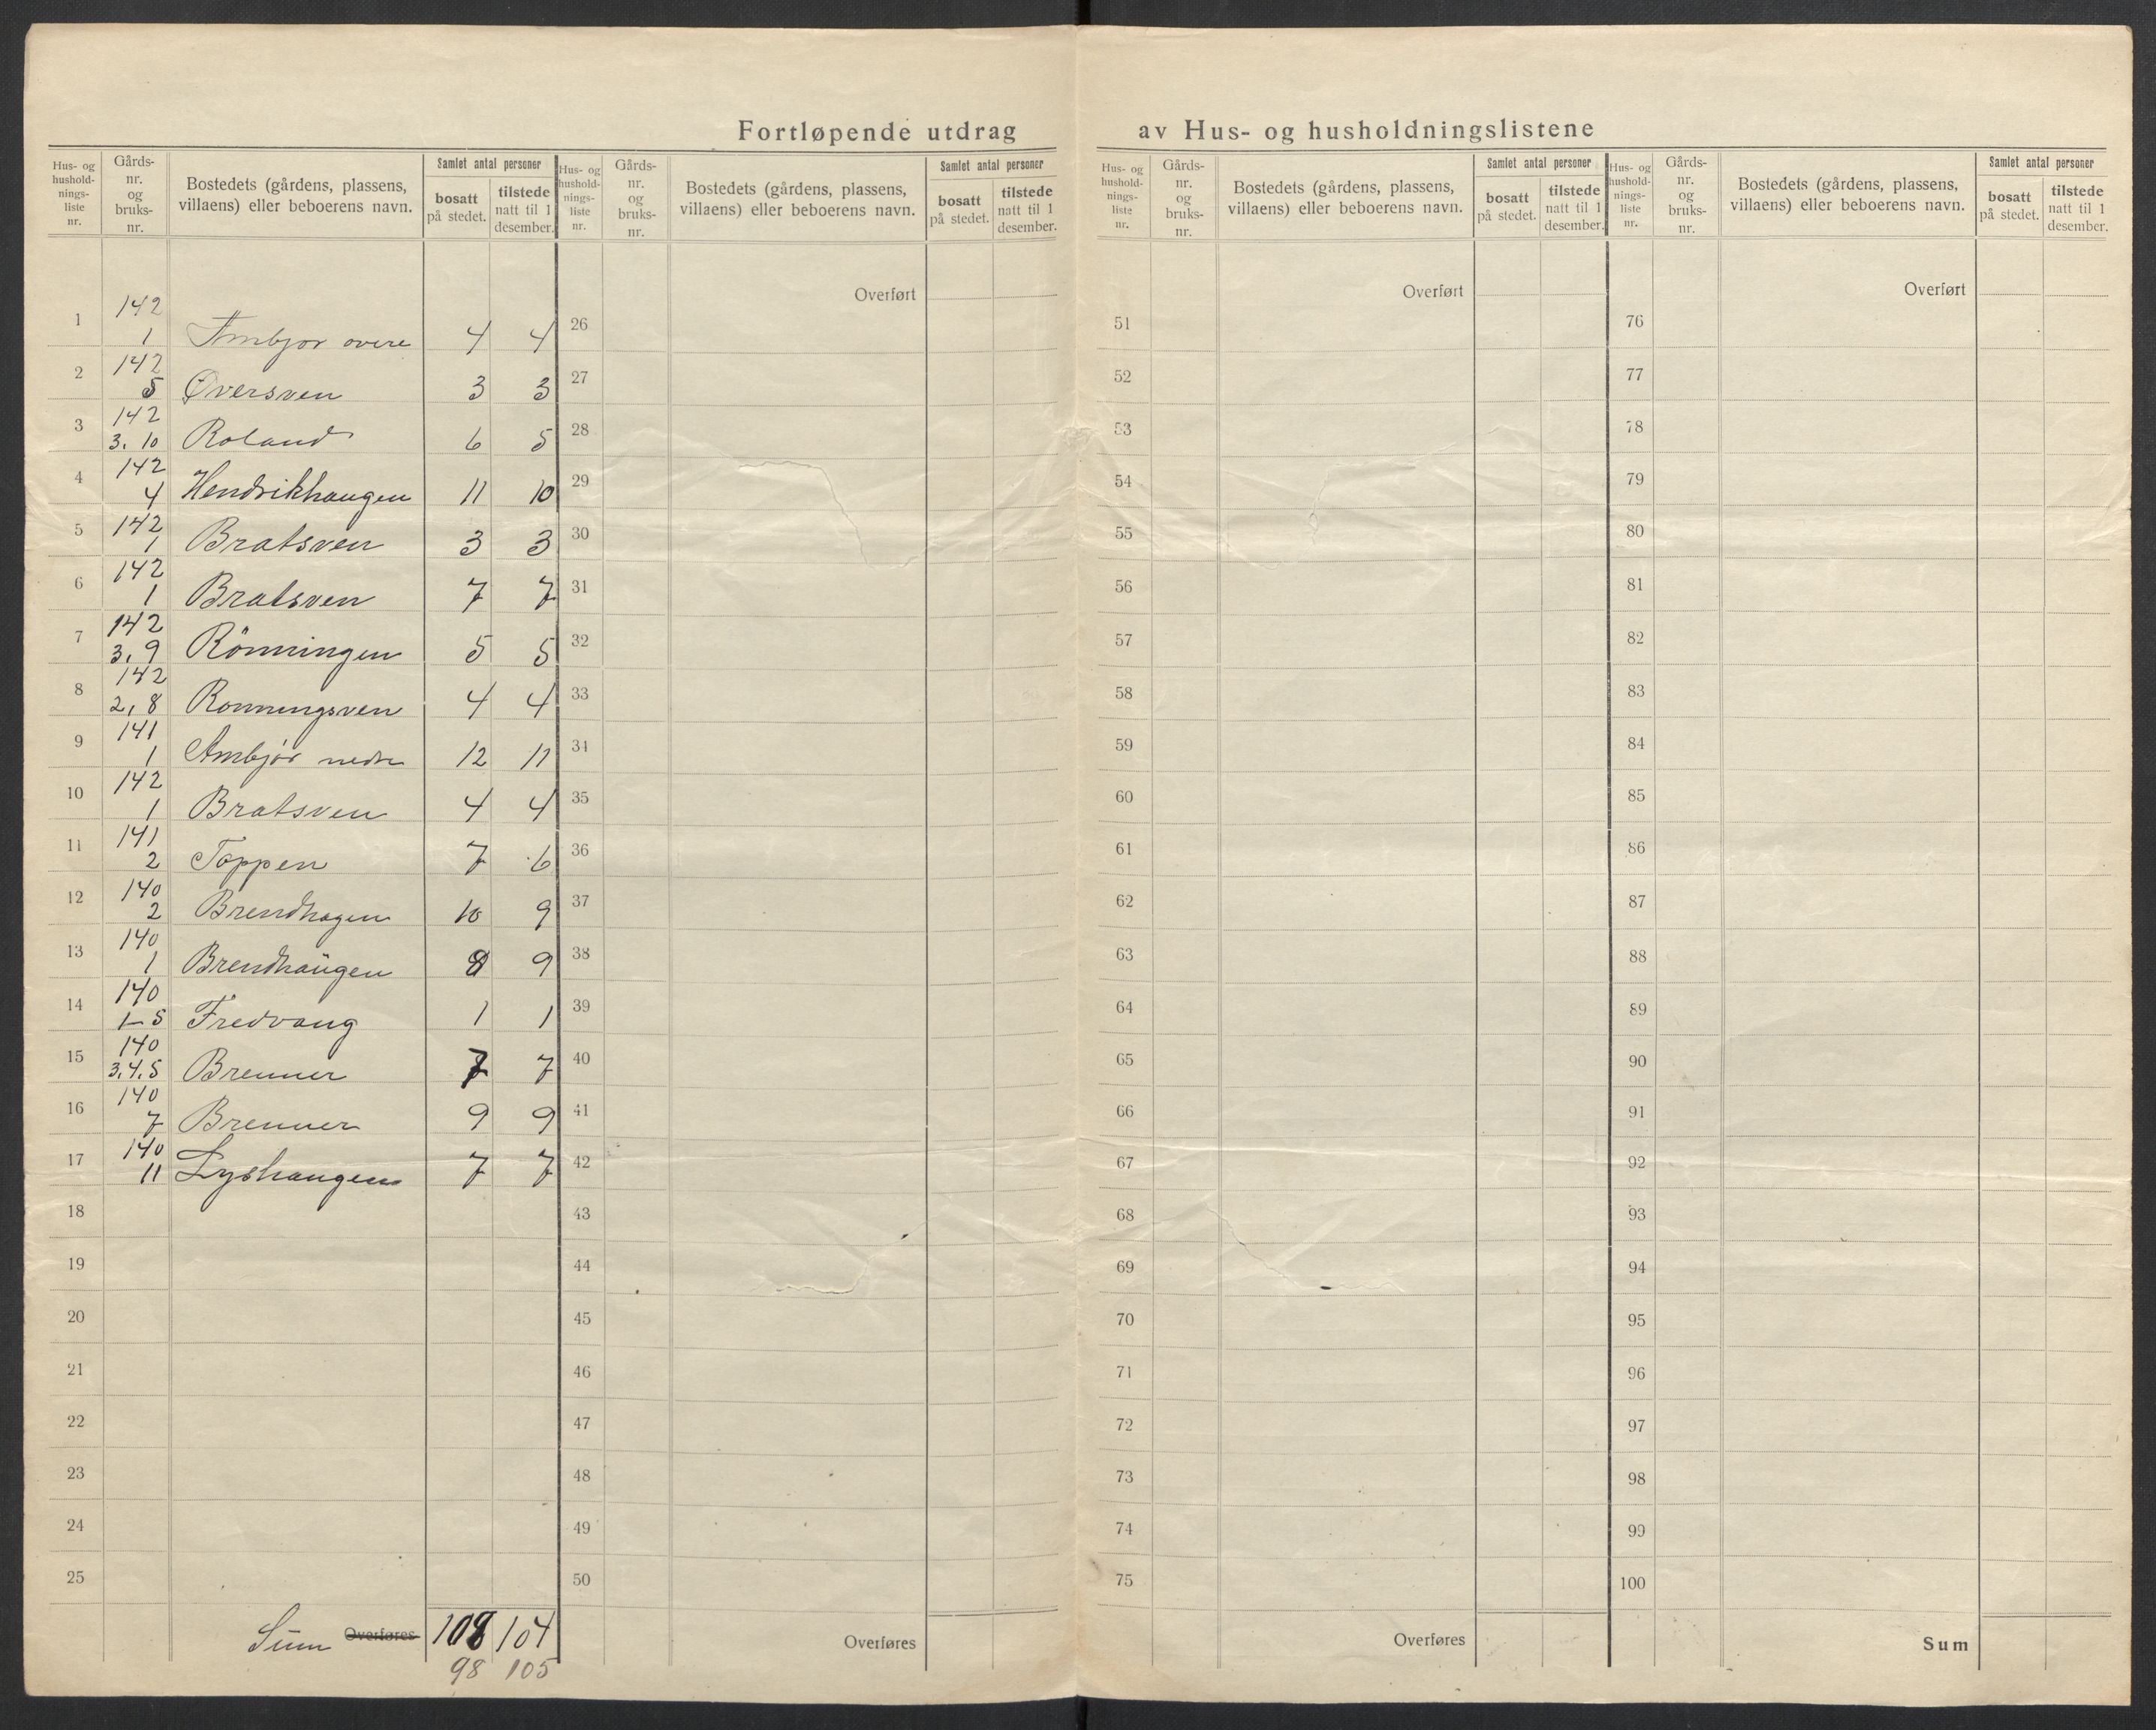 Fortløpende utdrag av Hus- og husholdningslistene
Hus- og hushold-nings-liste nr. Gårds-nr. og bruks-nr. Bostedets (gårdens, plassens, villaens) eller beboerens navn. Samlet antal personer bosatt på stedet. tilstede natt til 1 desember.
Hus- og hushold-nings-liste nr. Gårds-nr. og bruks-nr. Bostedets (gårdens, plassens, villaens) eller beboerens navn. Samlet antal personer bosatt på stedet. tilstede natt til 1 desember.
Hus- og hushold-nings-liste nr. Gårds-nr. og bruks-nr. Bostedets (gårdens, plassens, villaens) eller beboerens navn. Samlet antal personer bosatt på stedet. tilstede natt til 1 desember.
Hus- og hushold-nings-liste nr. Gårds-nr. og bruks-nr. Bostedets (gårdens, plassens, villaens) eller beboerens navn. Samlet antal personer bosatt på stedet. tilstede natt til 1 desember.
Overført Overført Overført
1 142 1 Ambjor overe 4 4 26 51 76
2 142 5 Øversven 3 3 27 52 77
3 142 3. 10 Roland 6 5 28 53 78
4 142 4 Hendrikhaugen 11 10 29 54 79
5 142 1 Bratsven 3 3 30 55 80
6 142 1 Bratsven 7 7 31 56 81
7 142 3, 9 Rönningen 5 5 32 57 82
8 142 2, 8 Ronningsven 4 4 33 58 83
9 141 1 Ambjör nedre 12 11 34 59 84
10 142 1 Bratsven 4 4 35 60 85
11 141 2 Toppen 7 6 36 61 86
12 140 2 Brendhagen 10 9 37 62 87
13 140 1 Brendhaugen 8 9 38 63 88
14 140 1-5 Fredvang 1 1 39 64 89
15 140 3.4.5 Brenner 7 7 40 65 90
16 140 7 Brenner 9 9 41 66 91
17 140 11 Lyshaugen 7 7 42 67 92
18 43 68 93
19 44 69 94
20 45 70 95
21 46 71 96
22 47 72 97
23 48 73 98
24 49 74 99
25 50 75 100
Sum Overføres 108 104 Overføres Overføres Sum
98 105